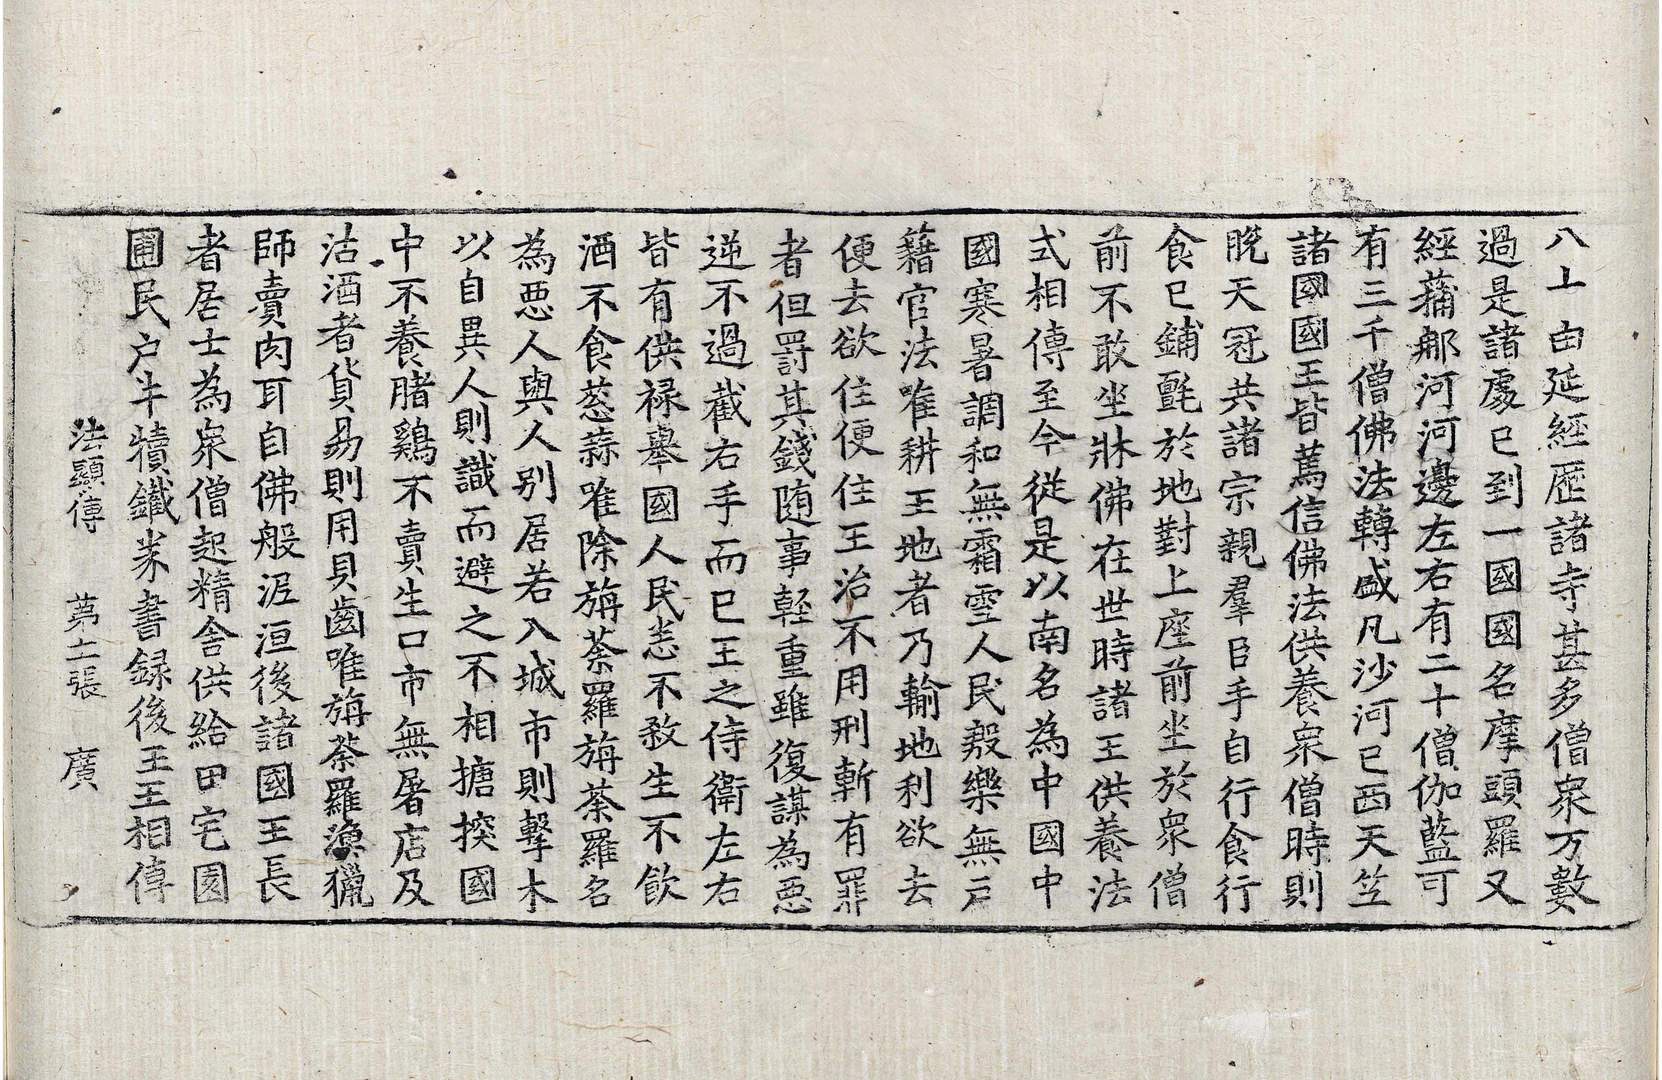 八十由延經歷諸寺甚多僧衆万數
過是諸處已到一國國名摩頭羅又
經蒱那河河邊左右有二十僧伽藍可
有三千僧佛法轉盛凡沙河已西天竺
諸國國王皆篤信佛法供養衆僧時則
脫天冠共諸宗親羣臣手自行食行
食已鋪氈於地對上座前坐於衆僧
前不敢坐牀佛在世時諸王供養法
式相傳至今從是以南名為中國中
國寒暑調和無霜雪人民殷樂無戶
籍官法唯耕王地者乃輸地利欲去
便去欲住便住王治不用刑斬有罪
者但罸其錢随事輕重雖復謀為惡
逆不過截右手而已王之侍衛左右
皆有供禄舉國人民悉不殺生不飲
酒不食葱蒜唯除旃荼羅旃荼羅名
為惡人與人別居若入城市則擊木
以自異人則識而避之不相搪揬國
中不養賭鷄不賣生口市無屠店及
沽酒者貨易則用貝齒唯旃荼羅漁獵
師賣肉耳自佛般泥洹後諸國王長
者居士為衆僧起精舍供給田宅園
圃民户牛犢鐵券書録後王王相傳
法顯傳 第十二張 廣